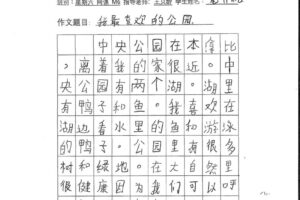 班别：星期六 网课 M6 指导老师：王 学生姓名：
作文题目：我最喜欢的公园
中央公园在本拿比
，离着我的家很近。中
央公园有两个湖。湖里
有鸭子和鱼。我喜欢在
湖边看水里的鱼和游泳
的鸭子。公园里有很多
树和绿地。在大自然里
很健康因为我们可以呼